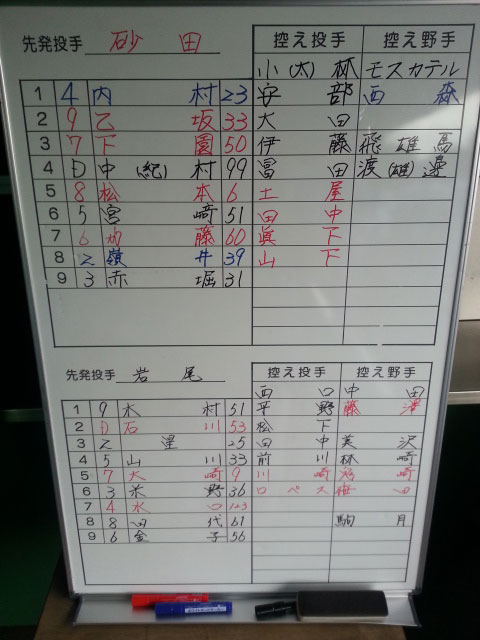 先発投手 砂田 控え投手 控え野手
小(太)林 モスカテル
1 4 内村 23 安部 西森
2 9 乙坂 33 大田
3 7 下園 50 伊藤 飛雄馬
4 D 中(紀)村 99 冨田 渡(雄)邊
5 8 松本 6 土屋
6 5 宮崎 51 田中
7 6 加藤 60 眞下
8 2 嶺井 39 山下
9 3 赤堀 31
先発投手 岩尾 控え投手 控え野手
西口 中田
1 9 木村 51 平野 藤澤
2 D 石川 53 松下
3 2 星 25 田中 美沢
4 5 山川 33 前川 林崎
5 7 大崎 9 川崎 崎
6 3 米野 36 ロペス 梅田
7 4 水口 123
8 8 田代 61 駒月
9 6 金子 56